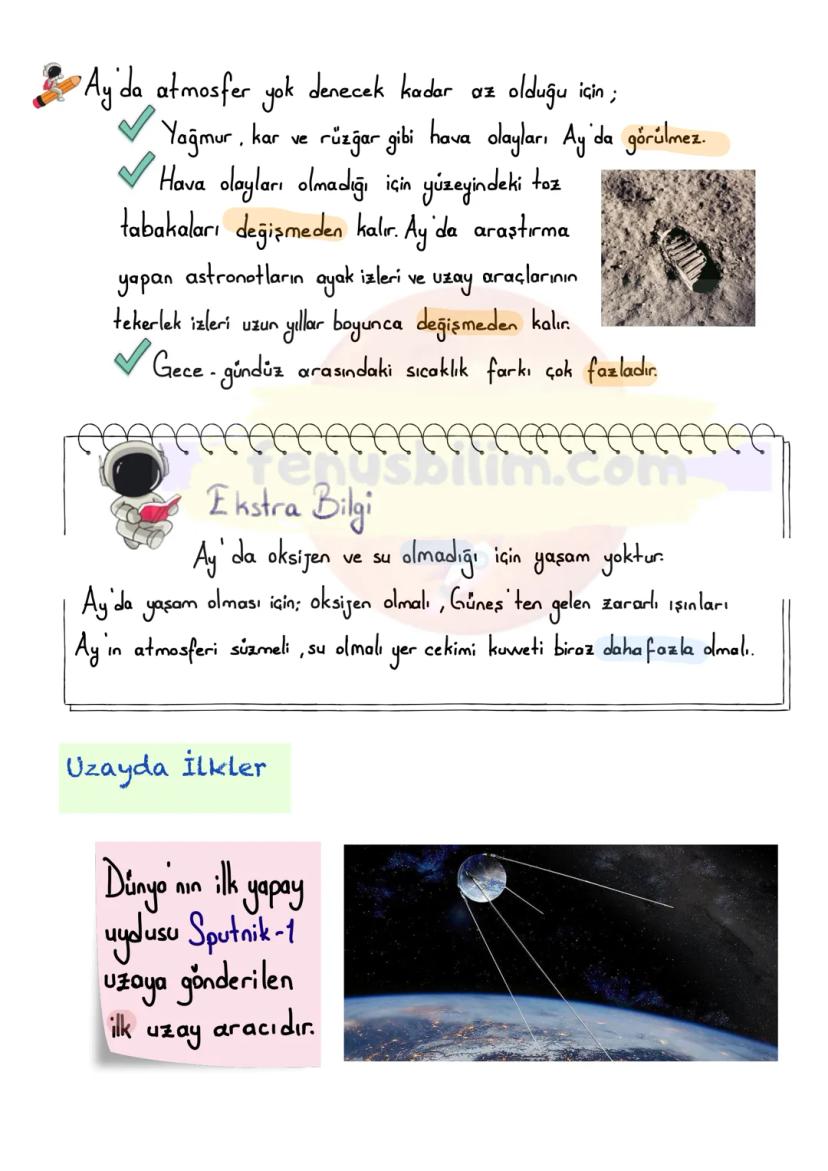 Ay'da atmosfer yok denecek kadar az olduğu için;
Yağmur, kar ve rüzğar gibi hava olayları Ay'da görülmez.
Hava olayları olmadığı için yüzeyindeki toz
tabakaları değişmeden kalır. Ay'da araştırma
yapan astronotların ayak izleri ve uzay araçlarının
tekerlek izleri uzun yıllar boyunca değişmeden kalır.
Gece - gündüz arasındaki sıcaklık farkı çok fazladır.
fenusbilim.com
Ekstra Bilgi
Ay'da oksijen ve su olmadığı için yaşam yoktur.
Ay'da yaşam olması için; oksijen olmalı, Güneş'ten gelen zararlı ışınları
Ay'ın atmosferi süzmeli, su olmalı yer cekimi kuvveti biraz daha fazla olmalı.
Uzayda İlkler
Dünya'nın ilk yapay
uydusu Sputnik-1
uzaya gönderilen
ilk uzay aracıdır.